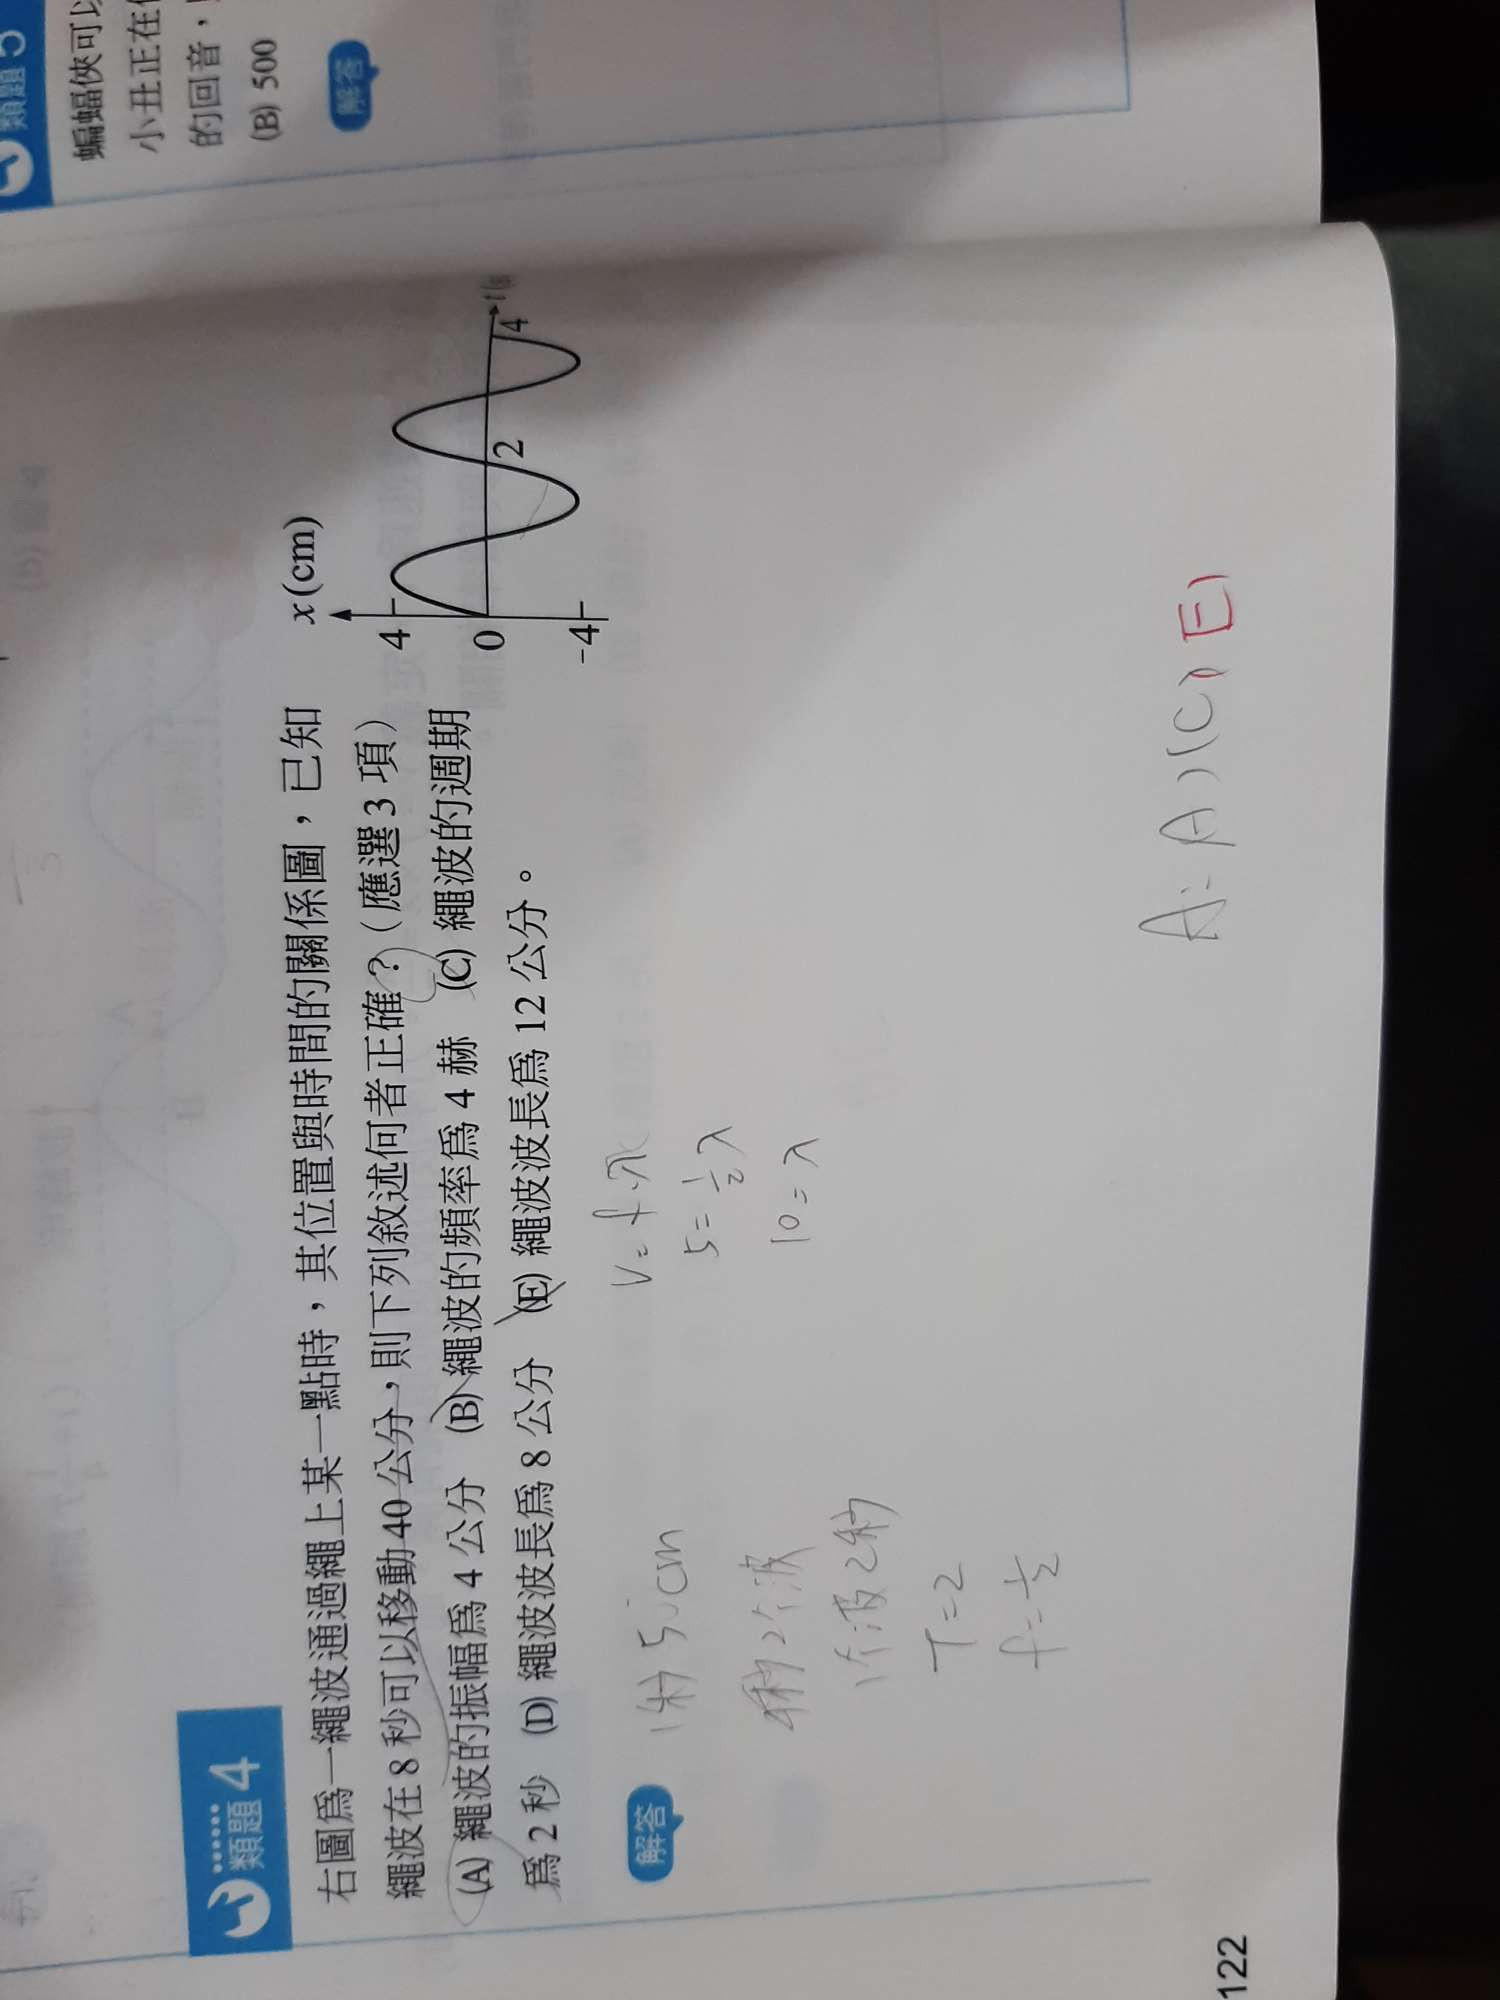 類題 5
蝙蝠俠可以
小丑正在
的回音，
(B) 500
解答
類題 4
右圖為一繩波通過繩上某一點時，其位置與時間的關係圖，已知
繩波在 8 秒可以移動 40 公分，則下列敘述何者正確？（應選 3 項）
(A) 繩波的振幅為 4 公分 (B) 繩波的頻率為 4 赫 (C) 繩波的週期
為 2 秒 (D) 繩波波長為 8 公分 (E) 繩波波長為 12 公分。
x (cm)
4
0
-4
2
4
t (s
解答
1秒 5cm
4秒 2个波
1个波 2秒
T=2
f=1/2
V=f·λ
5=1/2 λ
10=λ
A: A)(C)(E)
122